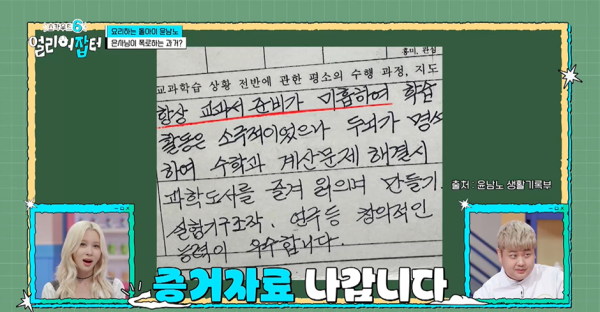 스카우트6
얼리어잡터
요리하는 돌아이 윤남노
은사님이 폭로하는 과거?
흥미, 관심
교과학습 상황 전반에 관한 평소의 수행 과정, 지도
항상 교과서 준비가 미흡하여 학습
활동은 소극적이었으나 두뇌가 명석
하여 수학과 계산문제 해결시
과학도서를 즐겨 읽으며 만들기.
실험기구조작. 연구등 창의적인
능력이 우수합니다.
출처 : 윤남노 생활기록부
증거자료 나갑니다